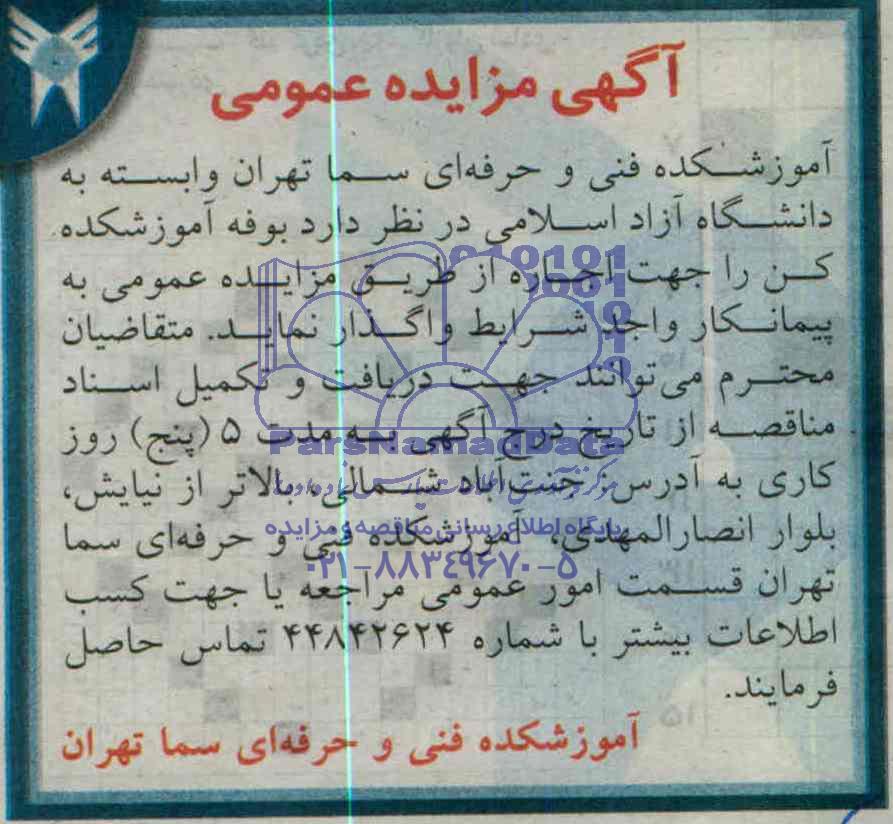 آگهی مزایده عمومی
آموزشکده فنی و حرفه‌ای سما تهران وابسته به
دانشگاه آزاد اسلامی در نظر دارد بوفه آموزشکده
کن را جهت اجاره از طریق مزایده عمومی به
پیمانکار واجد شرایط واگذار نماید. متقاضیان
محترم می‌توانند جهت دریافت و تکمیل اسناد
مناقصه از تاریخ درج آگهی به مدت ۵ (پنج) روز
کاری به آدرس: جنت‌آباد شمالی، بالاتر از نیایش،
بلوار انصارالمهدی، آموزشکده فنی و حرفه‌ای سما
تهران قسمت امور عمومی مراجعه یا جهت کسب
اطلاعات بیشتر با شماره ۴۴۸۴۲۶۲۴ تماس حاصل
فرمایند.
آموزشکده فنی و حرفه‌ای سما تهران
ParsNamadData
پایگاه اطلاع رسانی مناقصه و مزایده
۰۲۱-۸۸۳۴۹۶۷۰-۵